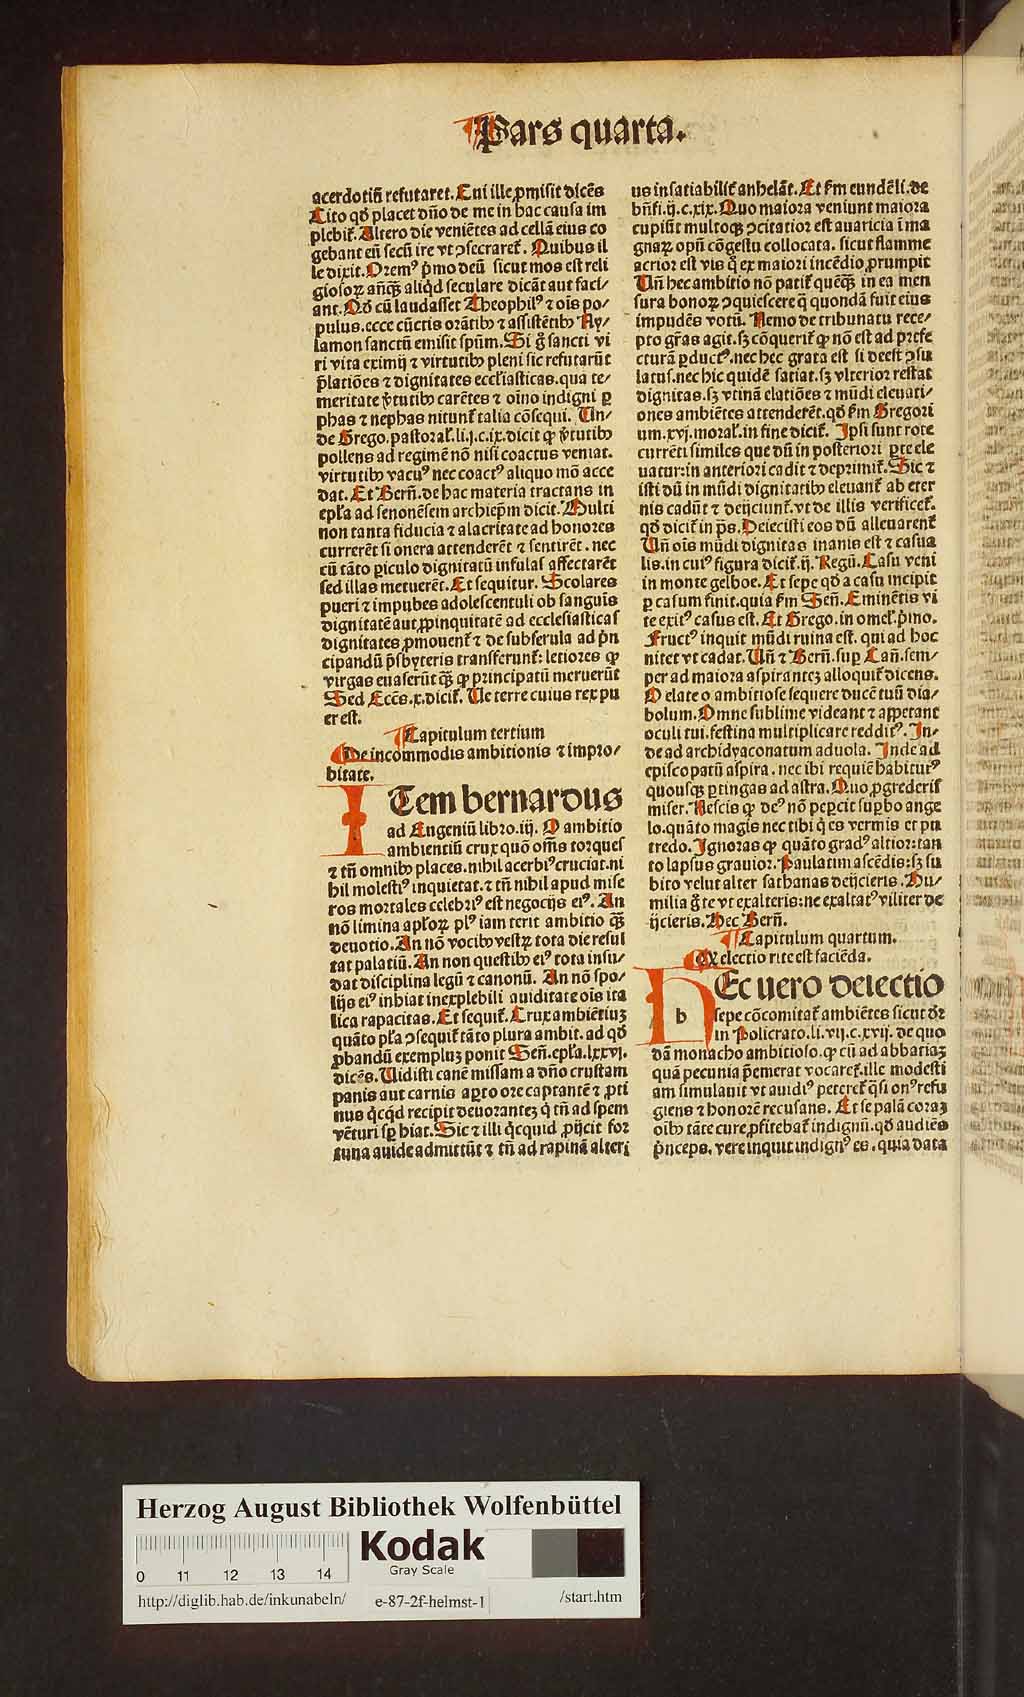 Pars quarta.
acerdotiū refutaret. Cui ille ꝓmisit dicēs
Cito qđ placet dn̄o de me in hac causa im
plebit᷑. Altero die veniētes ad cellā eius co
gebant eū secū ire vt ↄsecraret᷑. Quibus il
le dixit. Oremꝰ p̄mo deū sicut mos est reli
giosoꝝ anq̄ꝫ aliqd seculare dicāt aut faci/
ant. Qđ cū laudasset Theophilꝰ ⁊ oīs po/
pulus. ecce cūctis orātibꝫ ⁊ assistētibꝫ Ay/
lamon sanctū emisit spūm. Si gͦ sancti vi
ri vita eximij ⁊ virtutibꝫ pleni sic refutarūt
p̄latiōes ⁊ dignitates eccl̄iasticas. qua te/
meritate v̓tutibꝫ carētes ⁊ oīno indigni ꝑ
phas ⁊ nephas nitunt᷑ talia cōsequi. Un/
de Grego. pastoral᷑. li. j. c. ix. dicit ꝙ v̓tutibꝫ
pollens ad regimē nō nisi coactus veniat.
virtutibꝫ vacuꝰ nec coactꝰ aliquo mō acce
dat. Et Bern̄. de hac materia tractans in
epl̄a ad senonēsem archiep̄m dicit. Multi
non tanta fiducia ⁊ alacritate ad honores
currerēt si onera attenderēt ⁊ sentirēt. nec
cū tāto ꝑiculo dignitatū infulas affectarēt
sed illas metuerēt. Et sequitur. Scolares
pueri ⁊ impubes adolescentuli ob sanguīs
dignitatē aut ꝓpinquitatē ad ecclesiasticas
dignitates ꝓmouent᷑ ⁊ de subferula ad p̄n
cipandū p̄sbyteris transferunt᷑: letiores ꝙ
virgas euaserūt qꝫ ꝙ principatū meruerūt
Sed Eccēs. x. dicit᷑. Ue terre cuius rex pu
er est.
Capitulum tertium
De incommodis ambitionis ⁊ impro/
bitate.
ITem bernardus
ad Eugeniū libro. iij. O ambitio
ambientiū crux quō om̄s torques
⁊ tn̄ omnibꝫ places. nihil acerbiꝰ cruciat. ni
hil molestiꝰ inquietat. ⁊ tn̄ nihil apud mise
ros mortales celebriꝰ est negocijs eiꝰ. An
nō limina apl̄oꝝ plꝰ iam terit ambitio qꝫ
deuotio. An nō vocibꝫ vestꝝ tota die resul
tat palatiū. An non questibꝫ eiꝰ tota insu/
dat disciplina legū ⁊ canonū. An nō spo/
lijs eiꝰ inhiat inexplebili auiditate oīs ita
lica rapacitas. Et sequit᷑. Crux ambiētiuꝫ
quāto pl̄a ↄsequit᷑ tāto plura ambit. ad qđ
ꝓbandū exempluꝫ ponit Sen̄. epl̄a. lxxvj.
dicēs. Uidisti canē missam a dn̄o crustam
panis aut carnis aꝑto ore captantē ⁊ ꝓti
nus qͥcqd recipit deuorantez qͥ tn̄ ad spem
vēturi sꝑ hiat. Sic ⁊ illi qͥcquid ꝓijcit for
tuna auide admittūt ⁊ tn̄ ad rapinā alteri
us insatiabilit᷑ anhelāt. Et fm̄ eundē li. de
bn̄fi. ij. c. xix. Quo maiora veniunt maiora
cupiūt multoqꝫ ↄcitatior est auaricia ī ma
gnaꝝ opū cōgestu collocata. sicut flamme
acrior est vis q̄ ex maiori incēdio ꝓrumpit
Un̄ hec ambitio nō patit᷑ quēqꝫ in ea men
sura bonoꝝ ↄquiescere q̄ quondā fuit eius
impudēs votū. Nemo de tribunatu rece/
pto gr̄as agit. sꝫ cōquerit᷑ ꝙ nō est ad prefe
cturā ꝑductꝰ. nec hec grata est si deest ↄsu
latus. nec hic quidē satiat. sꝫ vlterior restat
dignitas. sꝫ vtinā elatiōes ⁊ mūdi eleuati/
ones ambiētes attenderēt. qđ fm̄ Gregori
um. xvj. moral᷑. in fine dicit᷑. Ipsi sunt rote
currēti similes que dū in posteriori ꝑte ele
uatur: in anteriori cadit ⁊ deprimit᷑. Sic ⁊
isti dū in mūdi dignitatibꝫ eleuant᷑ ab eter
nis cadūt ⁊ deijciunt᷑. vt de illis verificet᷑.
qđ dicit᷑ in ps̄. Deiecisti eos dū alleuarent᷑
Un̄ oīs mūdi dignitas inanis est ⁊ casua
lis. in cuiꝰ figura dicit᷑. ij. Regū. Casu veni
in monte gelboe. Et sepe qđ a casu incipit
ꝑ casum finit. quia fm̄ Sen̄. Eminētis vi
te exitꝰ casus est. Et Grego. in omel᷑. p̄mo.
Fructꝰ inquit mūdi ruina est. qui ad hoc
nitet vt cadat. Un̄ ⁊ Bern̄. suꝑ Can̄. sem/
per ad maiora aspirantez alloquit᷑ dicens.
O elate o ambitiose sequere ducē tuū dia/
bolum. Omne sublime videant ⁊ appetant
oculi tui. festina multiplicare redditꝰ. In/
de ad archidyaconatum aduola. Inde ad
episcopatū aspira. nec ibi requiē habiturꝰ
quousqꝫ ꝑtingas ad astra. Quo ꝓgrederis
miser. Nescis ꝙ deꝰ nō peꝑcit suꝑbo ange
lo. quāto magis nec tibi qͥ es vermis et pu
tredo. Ignoras ꝙ quāto gradꝰ altior: tan
to lapsus grauior. Paulatim ascēdis: sꝫ su
bito velut alter sathanas deijcieris. Hu/
milia gͦ te vt exalteris: ne exaltatꝰ viliter de
ijcieris. Hec Bern̄.
Capitulum quartum.
Q electio rite est faciēda.
HEc vero deiectio
b
sepe cōcomitat᷑ ambiētes sicut dr̄
in Policrato. li. vij. c. xvij. de quo
dā monacho ambitioso. ꝙ cū ad abbatiaꝫ
quā pecunia p̄emerat vocaret᷑. ille modesti
am simulauit vt auidiꝰ peteret᷑ qͣsi onꝰ refu
giens ⁊ honorē recusans. Et se palā coraꝫ
oībꝫ tāte cure ꝓfitebat᷑ indignū. qđ audiēs
p̄nceps. vere inquit indignꝰ es. quia data
Herzog August Bibliothek Wolfenbüttel
0 11 12 13 14
Kodak
Gray Scale
http://diglib.hab.de/inkunabeln/ e-87-2f-helmst-1 /start.htm